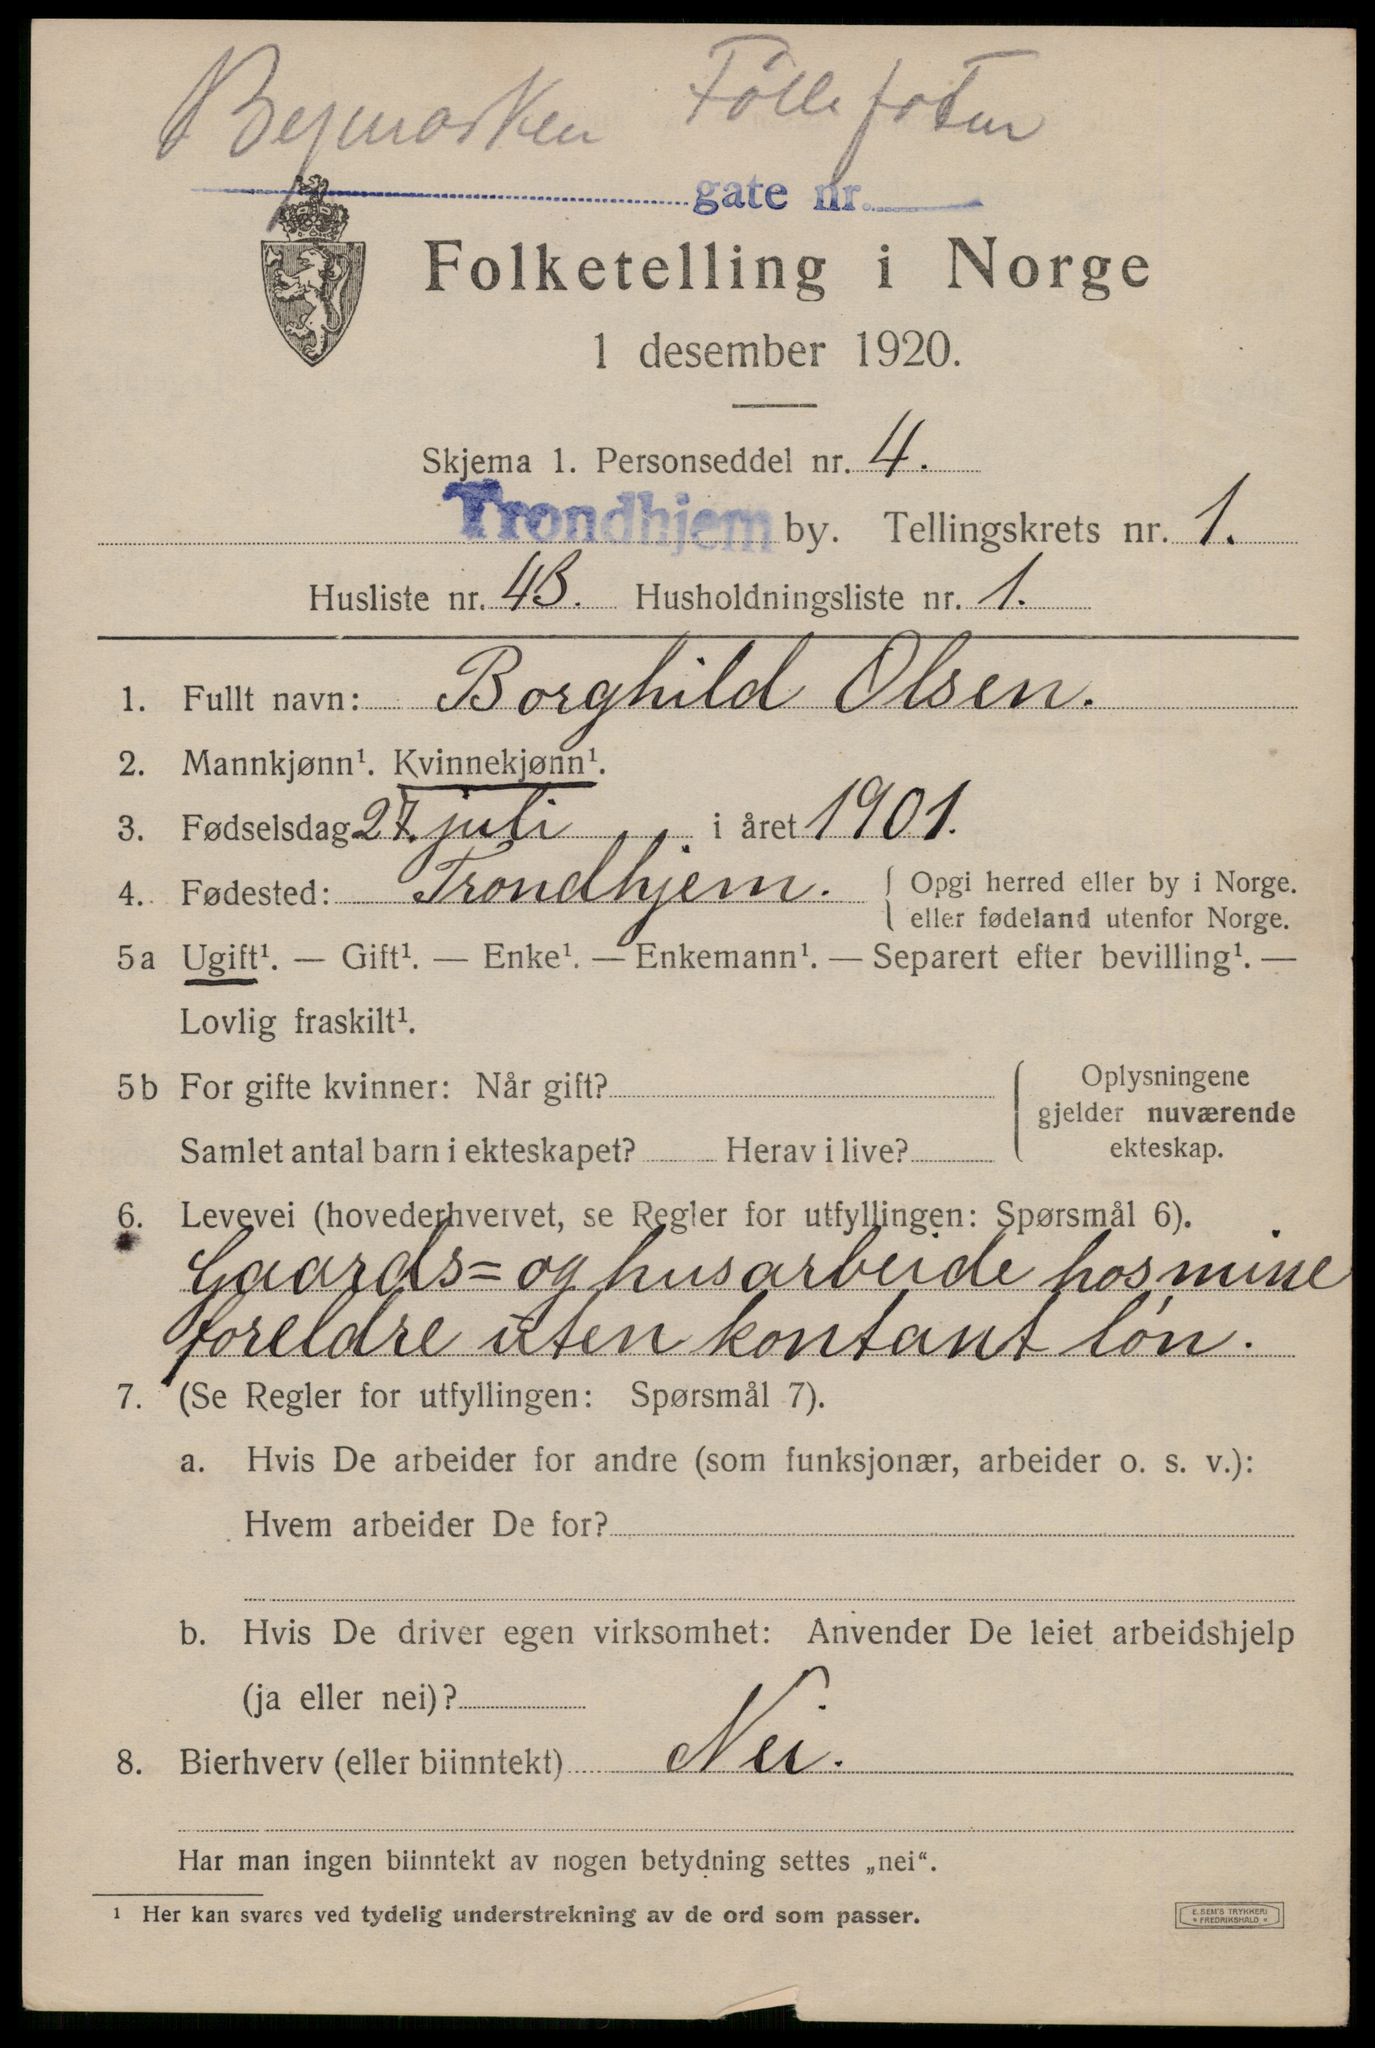 Bymarken Tølle fotun
gate nr.
Folketelling i Norge
1 desember 1920.
Skjema 1. Personseddel nr. 4.
Trondhjem by. Tellingskrets nr. 1.
Husliste nr. 43. Husholdningsliste nr. 1.
1. Fullt navn: Borghild Olsen.
2. Mannkjønn¹. Kvinnekjønn¹.
3. Fødselsdag 27. juli i året 1901.
4. Fødested: Trondhjem. { Opgi herred eller by i Norge.
eller fødeland utenfor Norge.
5a Ugift¹. — Gift¹. — Enke¹. — Enkemann¹. — Separert efter bevilling¹. —
Lovlig fraskilt¹.
5b For gifte kvinner: Når gift? { Oplysningene
gjelder nuværende
Samlet antal barn i ekteskapet? Herav i live? ekteskap.
6. Levevei (hovederhvervet, se Regler for utfyllingen: Spørsmål 6).
Gaards= og husarbeide hos mine
foreldre uten kontant løn.
7. (Se Regler for utfyllingen: Spørsmål 7).
a. Hvis De arbeider for andre (som funksjonær, arbeider o. s. v.):
Hvem arbeider De for?
b. Hvis De driver egen virksomhet: Anvender De leiet arbeidshjelp
(ja eller nei)?
8. Bierhverv (eller biinntekt) Nei.
Har man ingen biinntekt av nogen betydning settes „nei“.
¹ Her kan svares ved tydelig understrekning av de ord som passer.
E. SEM'S TRYKKERI
* FREDRIKSHALD *